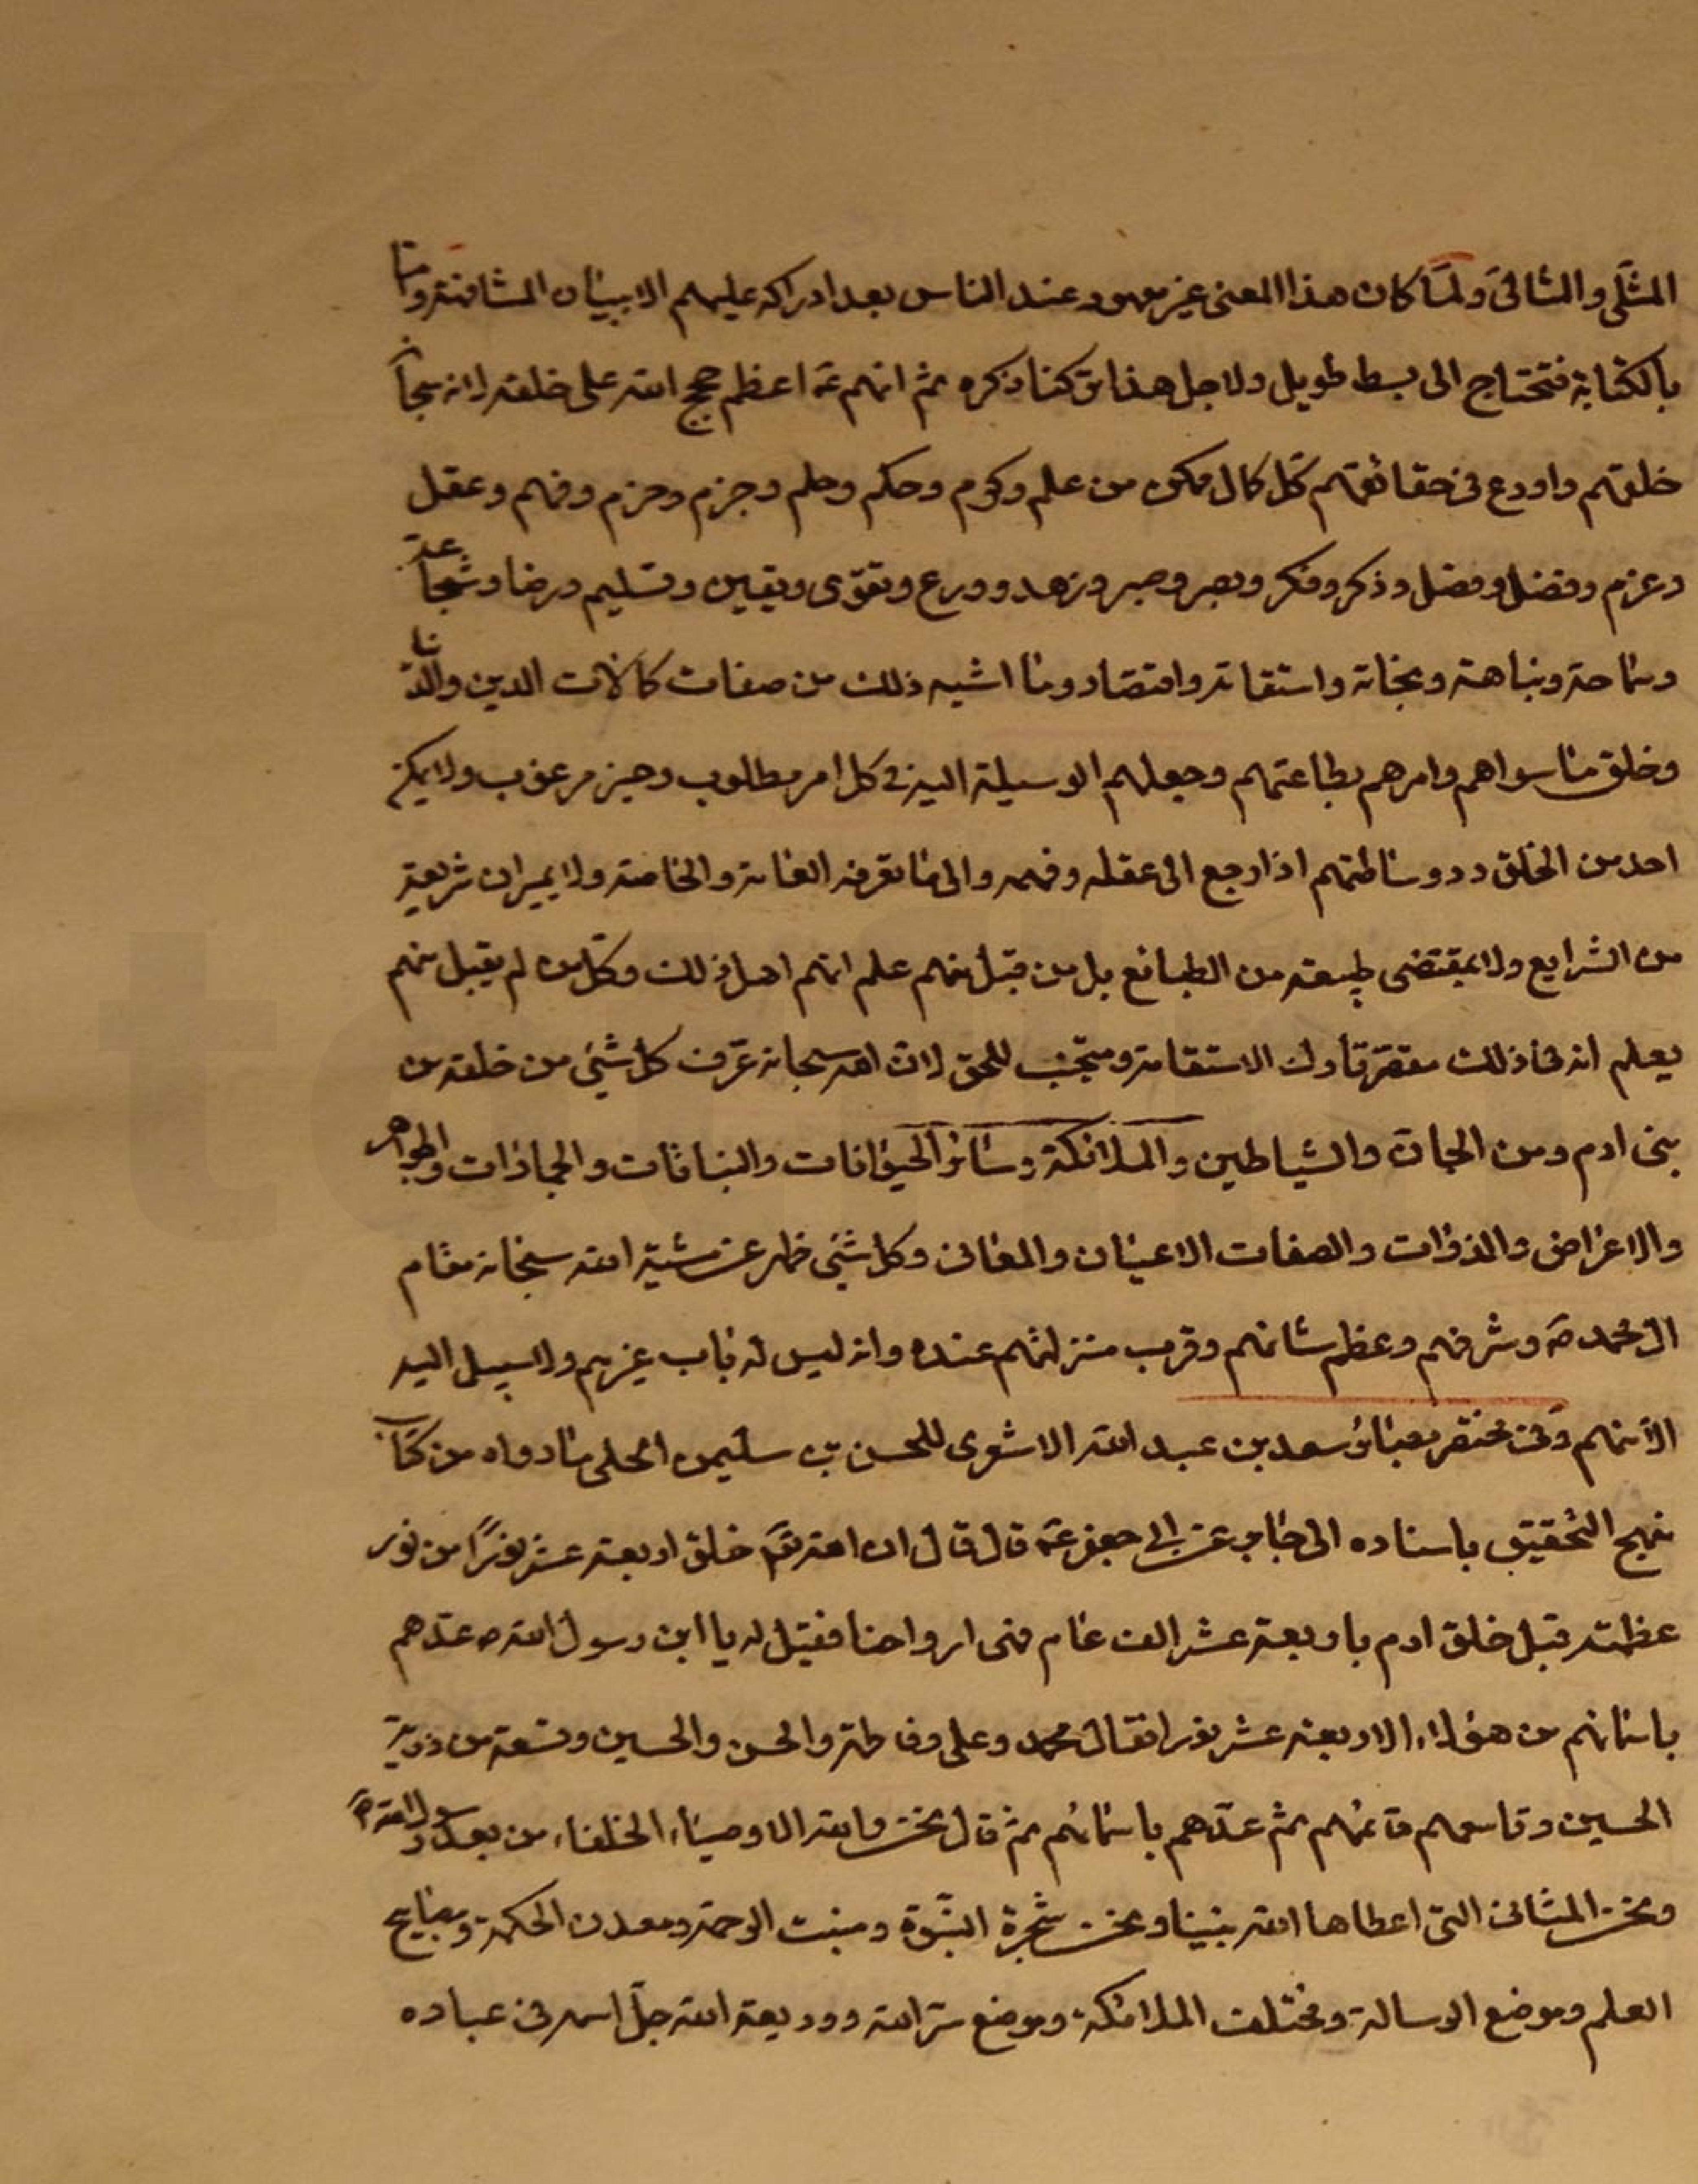 المثلى والثانى ولما كان هذا المعنى غير معهود عند الناس بعد ادراكه عليهم الا ببيان المشافهة واما
بالكتابة فتحتاج الى بسط طويل ولاجل هذا تركنا ذكره ثم انهم عـ اعظم حجج الله على خلقه لانه سبحانه
خلقهم واودع فى حقائقهم كل كمال ممكن من علم وكرم وحكم وحلم وجزم وحزم وفهم وعقل
وعزم وفضل وفصل وذكر وفكر وبصر وصبر وزهد وورع وتقوى ويقين وتسليم ورضا وشجاعة
وسماحة ونباهة ونجابة واستقامة واقتصاد وما اشبه ذلك من صفات كمالات الدين والدنيا
وخلق ما سواهم وامرهم بطاعتهم وجعلهم الوسيلة اليه فى كل امر مطلوب وخير مرغوب ولا يمكن
احد من الخلق رد وساطتهم اذا رجع الى عقله وفهمه والى ما تعرفه العامة والخاصة ولا بميزان شريعة
من الشرايع ولا بمقتضى طبيعة من الطبائع بل من قبل منهم علم انهم اهل ذلك وكل من لم يقبل منهم
يعلم انه فى ذلك مقصر تارك الاستقامة ومتجنب للحق لان الله سبحانه عرف كل شئ من خلقه من
بنى ادم ومن الجان والشياطين والملائكة وسائر الحيوانات والنباتات والجمادات والجواهر
والاعراض والذوات والصفات الاعيان والمعانى وكل شئ ظهر عن مشية الله سبحانه مقام
ال محمد ص وشرفهم وعظم شانهم وقرب منزلتهم عنده وانه ليس له باب غيرهم ولا سبيل اليه
الا منهم وفى مختصر بصائر سعد بن عبد الله الاشعرى للحسن بن سليمن الحلى ما رواه من كتاب
نهج التحقيق باسناده الى جابر عن ابى جعفر عـ قال قال ان الله تعـ خلق اربعة عشر نورًا من نور
عظمته قبل خلق ادم باربعة عشر الف عام فهى ارواحنا فقيل له يا ابن رسول الله ص عدّهم
باسمائهم من هؤلاء الاربعة عشر نورا فقال محمد وعلى وفاطمة والحسن والحسين وتسعة من ذرية
الحسين وتاسعهم قائمهم ثم عدّهم باسمائهم ثم قال نحن والله الاوصياء الخلفاء من بعد رسول الله ص
ونحن المثانى التى اعطاها الله نبينا ونحن شجرة النبوة ومنبت الرحمة ومعدن الحكمة ومصابيح
العلم وموضع الرسالة ومختلف الملائكة وموضع سرّ الله ووديعة الله جلّ اسمه فى عباده